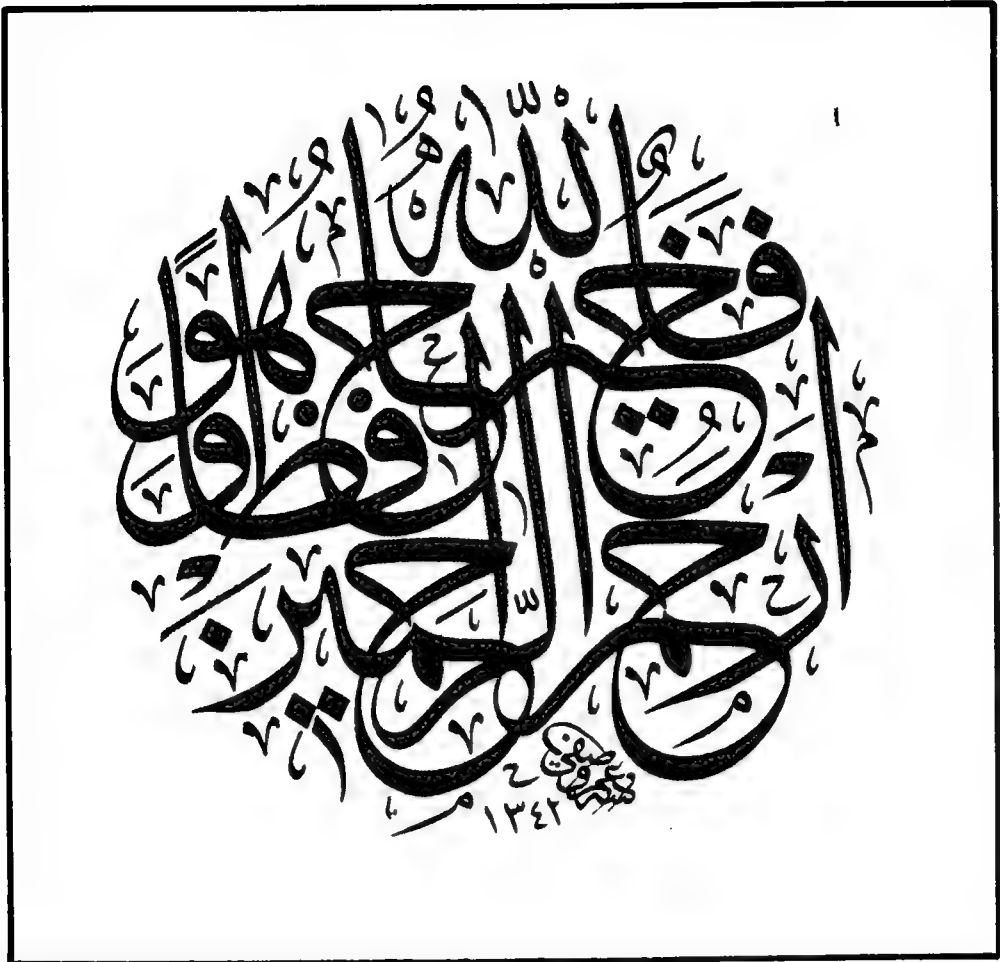 فالله خير حافظا وهو أرحم الراحمين
١٣٤٢